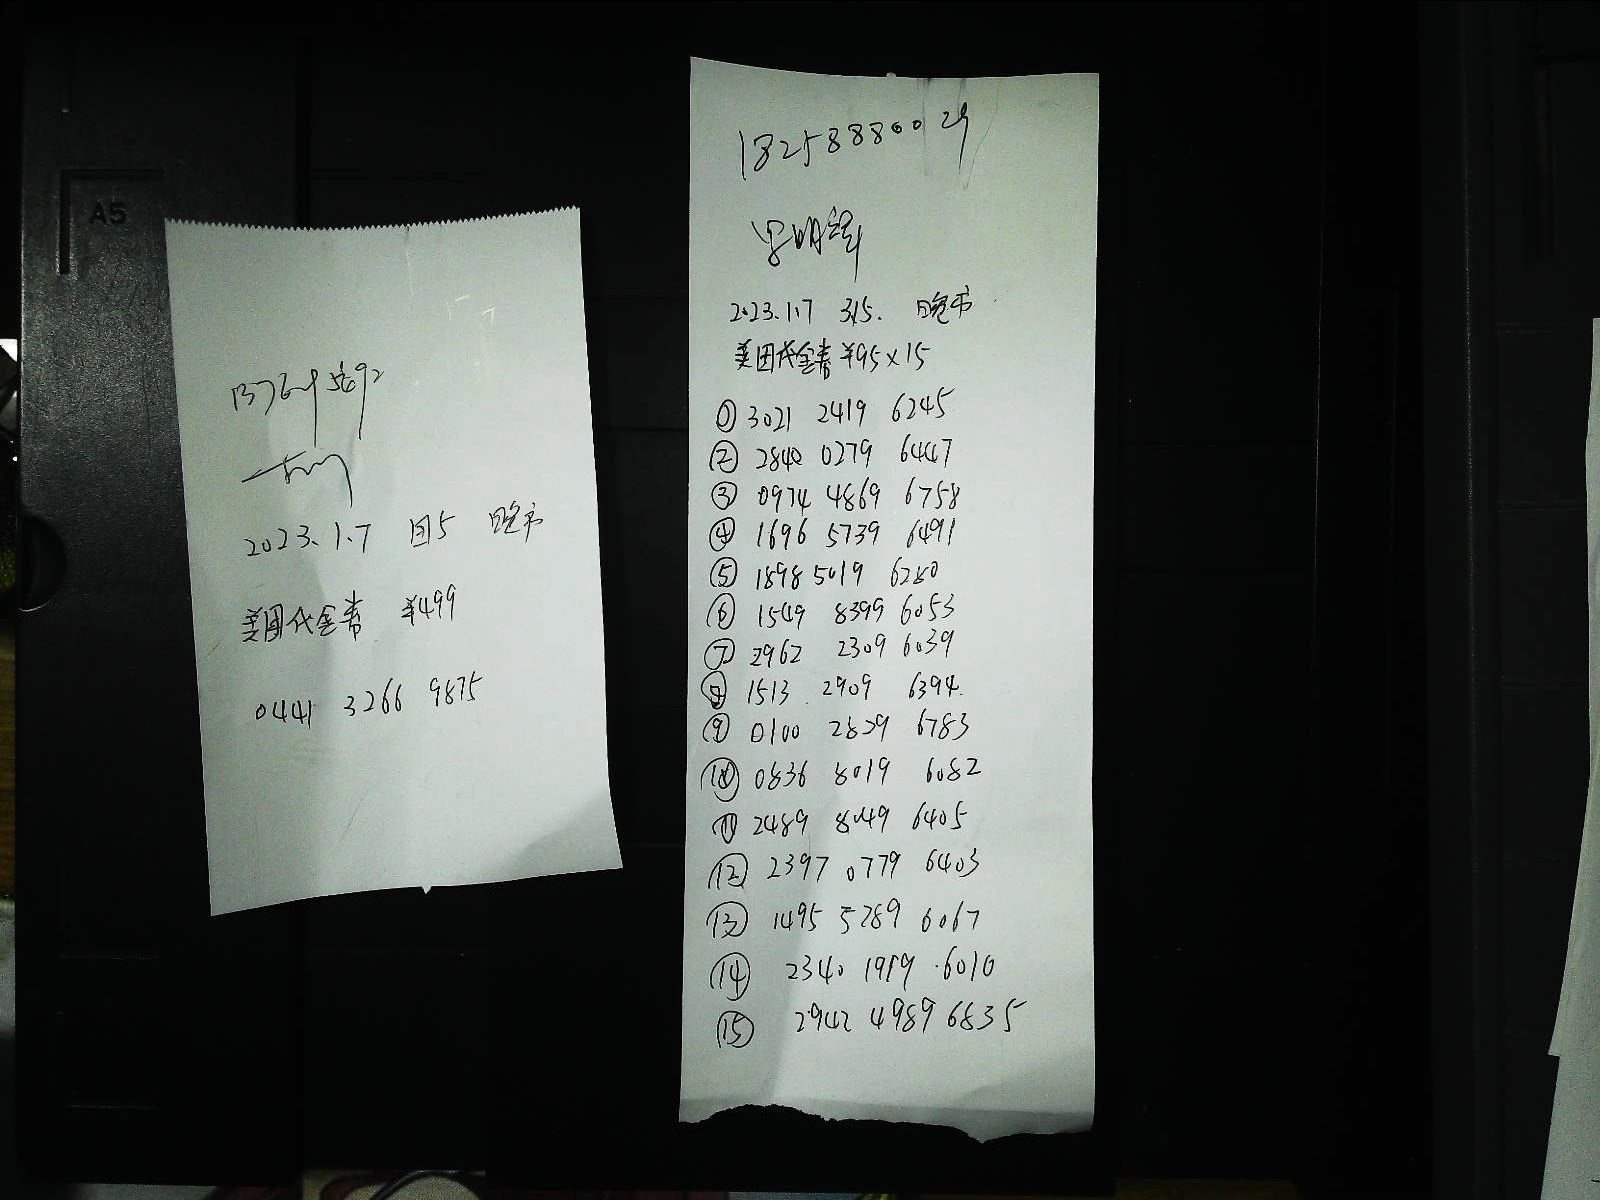 A5
2023.1.7 团5 晚市
美团代金券 ¥499
0441 3266 9875
18258880029
2023.1.7 315. 晚市
美团代金券 ¥95×15
① 3021 2419 6245
② 2840 0279 6447
③ 0974 4869 6758
④ 1696 5739 6491
⑤ 1898 5019 6280
⑥ 1549 8399 6053
⑦ 2962 2309 6039
⑧ 1513 2909 6394
⑨ 0100 2829 6783
⑩ 0836 8019 6082
⑪ 2489 8049 6405
⑫ 2397 0779 6403
⑬ 1495 5289 6067
⑭ 2340 1919 6010
⑮ 2942 4989 6835